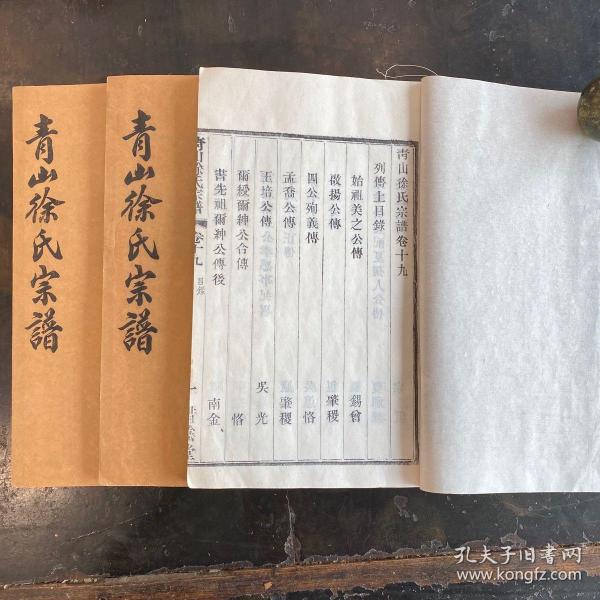 青山徐氏宗譜
青山徐氏宗譜
青山徐氏宗譜卷十九
列傳上目錄
始祖美之公傳 錫曾
啟揚公傳 肇稷
四公殉義傳 恪
孟喬公傳 肇稷
玉培公傳 吳光
爾綬爾紳公合傳 恪
書先祖爾紳公傳後 南金
青山徐氏宗譜 卷十九 目錄 一
孔夫子旧书网
www.kongfz.com